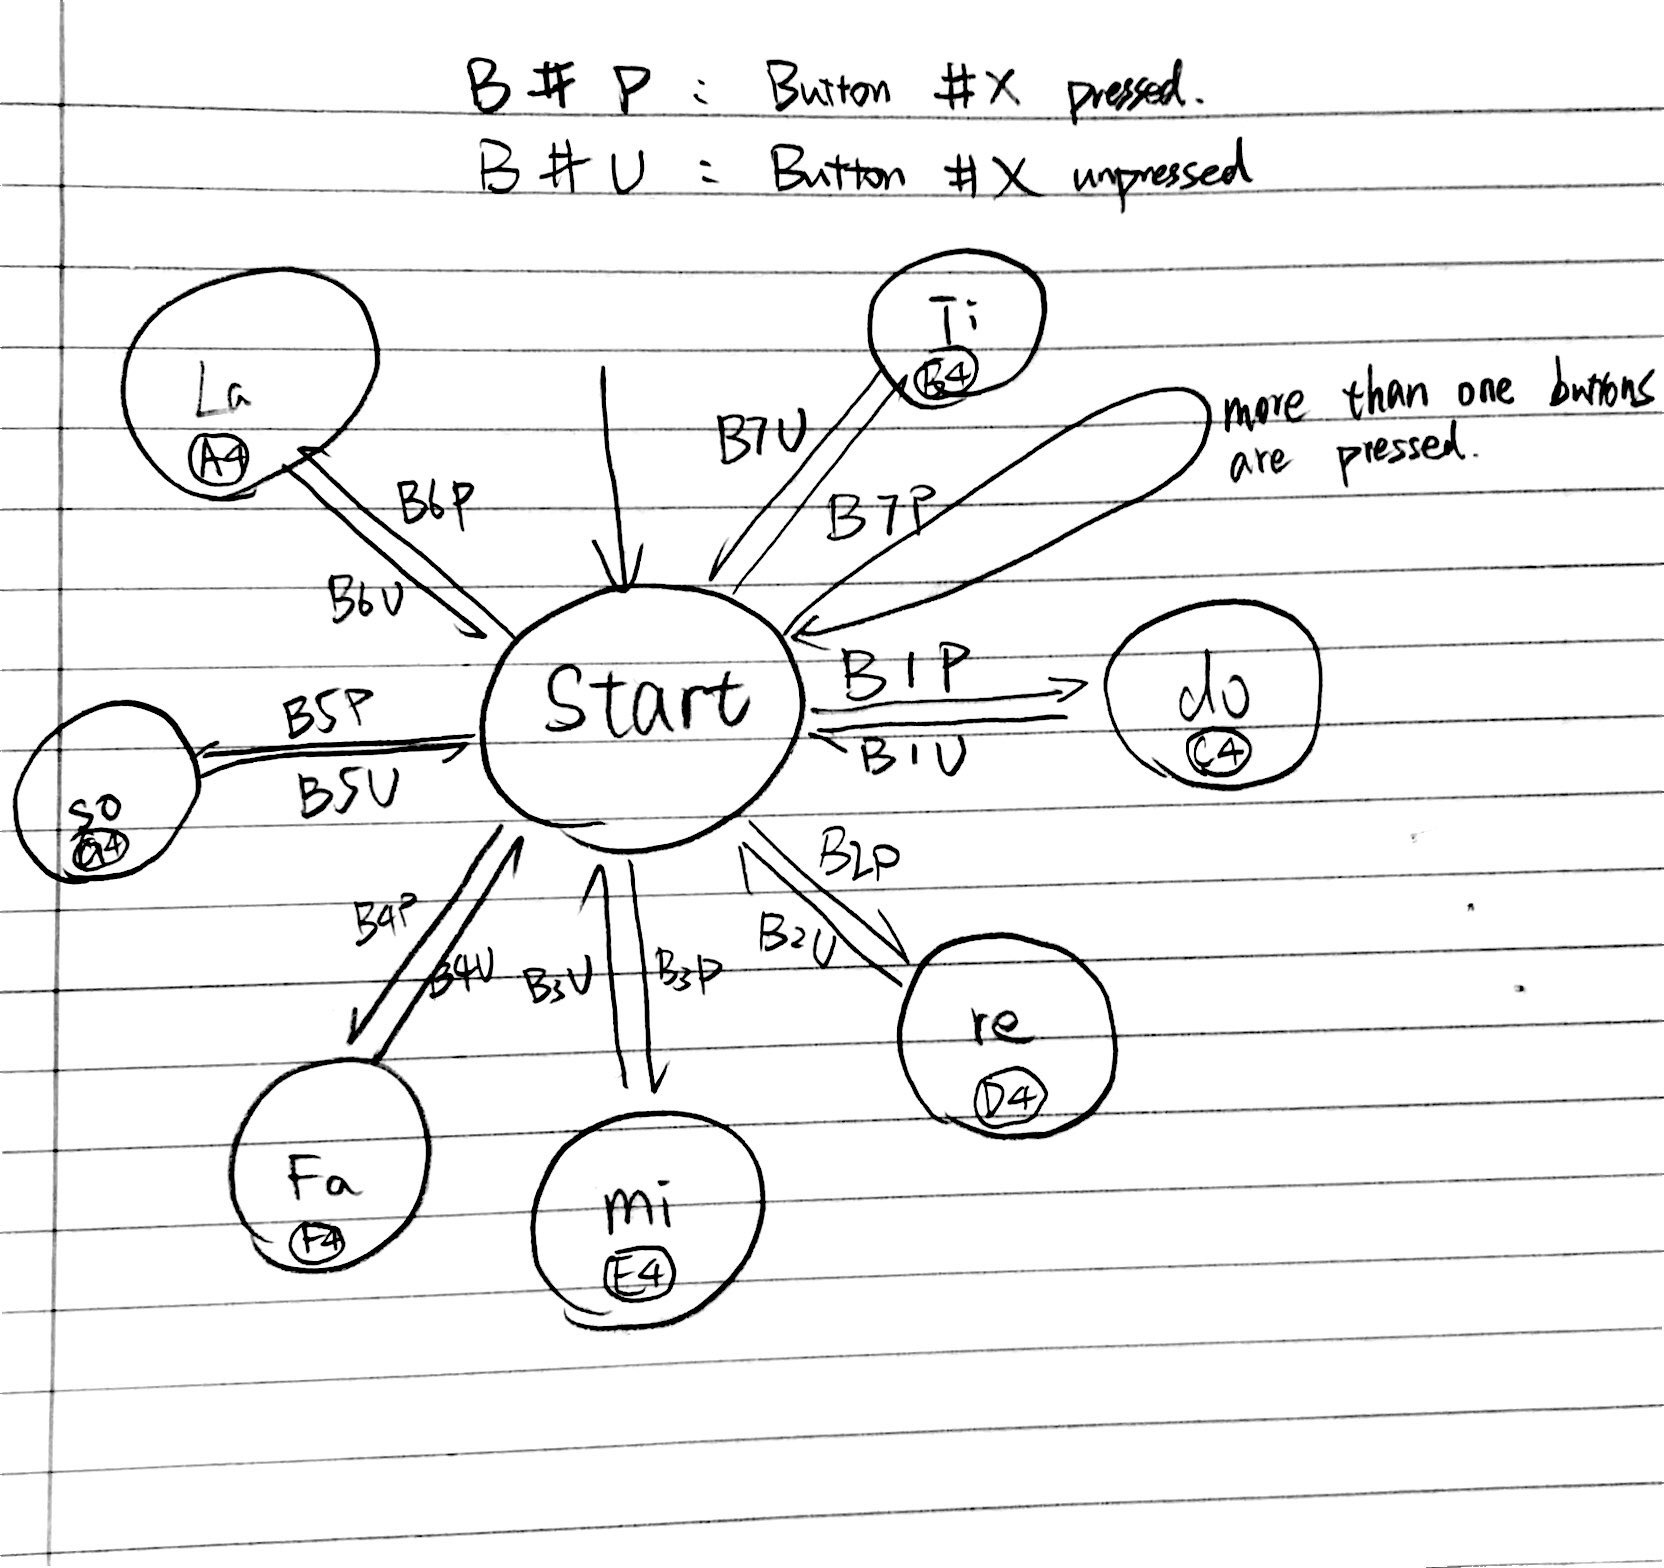 B # P : Button #X pressed.
B # U : Button #X unpressed
Ti
B4
La
A4
more than one buttons
are pressed.
B7U
B7P
B6P
B6U
Start
B1P
B1U
do
C4
B5P
B5U
so
G4
B2P
B2U
B4P
B4U
B3U
B3P
re
D4
Fa
F4
mi
E4